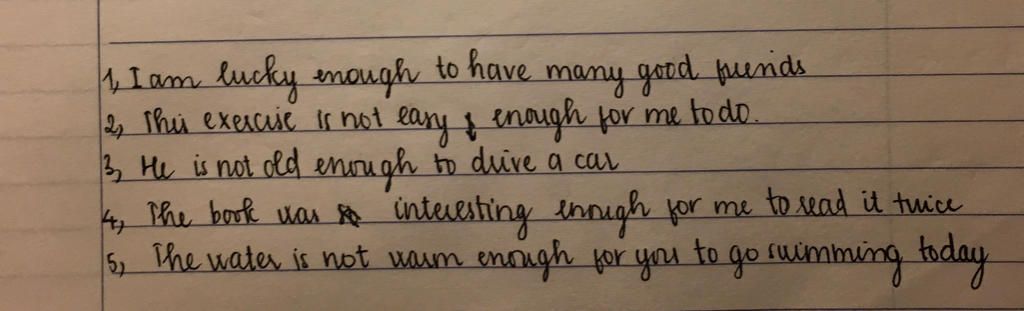 1, I am lucky enough to have many good friends
2, This exercise is not easy enough for me to do.
3, He is not old enough to drive a car
4, The book was interesting enough for me to read it twice
5, The water is not warm enough for you to go swimming today